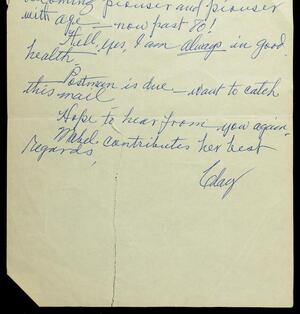 becoming piouser and piouser
with age — now past 80!
Well, yes, I am always in good
health.
Postman is due — want to catch
this mail
Hope to hear from you again.
Mabel contributes her best
regards,
Clay